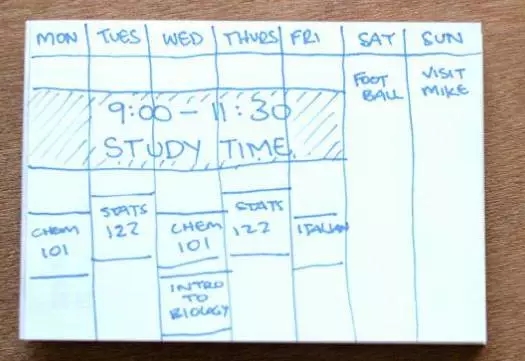 MON TUES WED THURS FRI SAT SUN
FOOT VISIT
BALL MIKE
9:00 - 11:30
STUDY TIME
STATS STATS
CHEM 122 CHEM 122 ITALIAN
101 101
INTRO
TO
BIOLOGY